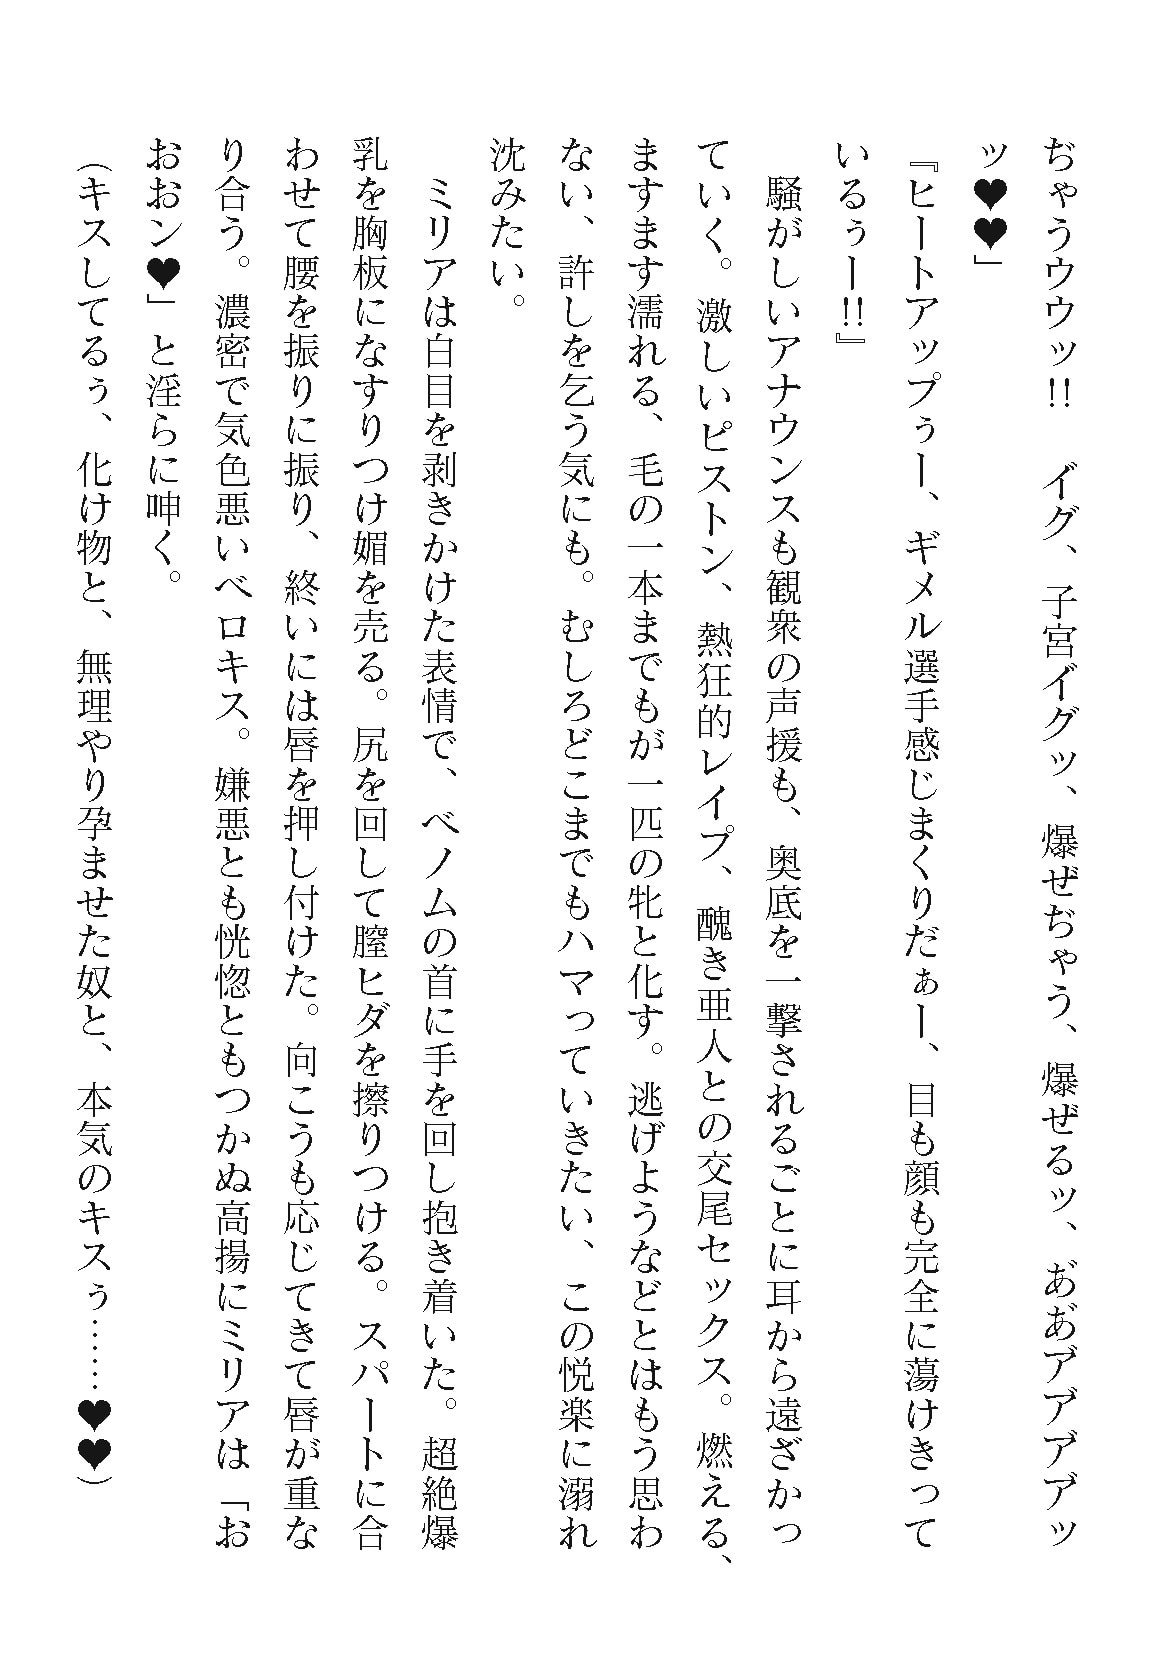 ぢゃうウウッ!!　イグ、子宮イグッ、爆ぜぢゃう、爆ぜるッ、あ゙あ゙ア゙ア゙ア゙ア゙ッ
ッ♥♥」
『ヒートアップぅー、ギメル選手感じまくりだぁー、目も顔も完全に蕩けきって
いるぅー!!』
　騒がしいアナウンスも観衆の声援も、奥底を一撃されるごとに耳から遠ざかっ
ていく。激しいピストン、熱狂的レイプ、醜き亜人との交尾セックス。燃える、
ますます濡れる、毛の一本までもが一匹の牝と化す。逃げようなどとはもう思わ
ない、許しを乞う気にも。むしろどこまでもハマっていきたい、この悦楽に溺れ
沈みたい。
　ミリアは白目を剥きかけた表情で、ベノムの首に手を回し抱き着いた。超絶爆
乳を胸板になすりつけ媚を売る。尻を回して膣ヒダを擦りつける。スパートに合
わせて腰を振りに振り、終いには唇を押し付けた。向こうも応じてきて唇が重な
り合う。濃密で気色悪いベロキス。嫌悪とも恍惚ともつかぬ高揚にミリアは「お
おおン♥」と淫らに呻く。
（キスしてるぅ、化け物と、無理やり孕ませた奴と、本気のキスぅ……♥♥）